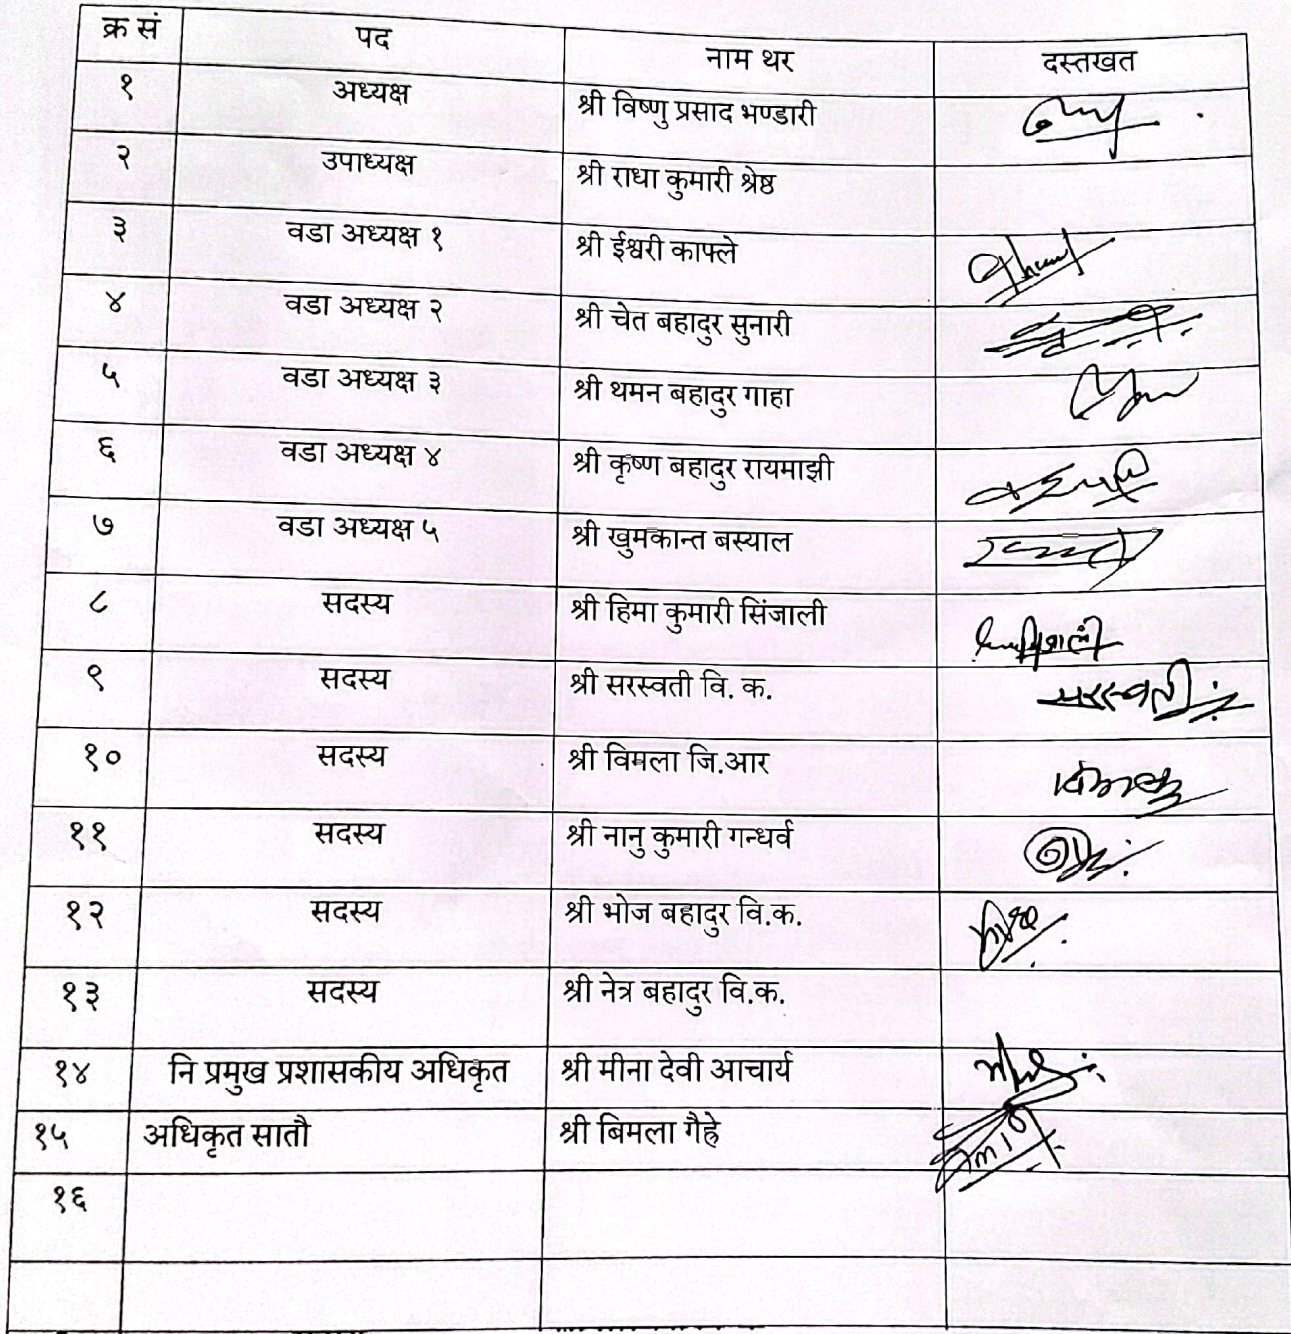 क्र सं पद नाम थर दस्तखत
१ अध्यक्ष श्री विष्णु प्रसाद भण्डारी
२ उपाध्यक्ष श्री राधा कुमारी श्रेष्ठ
३ वडा अध्यक्ष १ श्री ईश्वरी काफ्ले
४ वडा अध्यक्ष २ श्री चेत बहादुर सुनारी
५ वडा अध्यक्ष ३ श्री थमन बहादुर गाहा
६ वडा अध्यक्ष ४ श्री कृष्ण बहादुर रायमाझी
७ वडा अध्यक्ष ५ श्री खुमकान्त बस्याल
८ सदस्य श्री हिमा कुमारी सिंजाली
९ सदस्य श्री सरस्वती वि. क. सरस्वती
१० सदस्य श्री विमला जि.आर
११ सदस्य श्री नानु कुमारी गन्धर्व
१२ सदस्य श्री भोज बहादुर वि.क.
१३ सदस्य श्री नेत्र बहादुर वि.क.
१४ नि प्रमुख प्रशासकीय अधिकृत श्री मीना देवी आचार्य
१५ अधिकृत सातौ श्री बिमला गैह्रे
१६